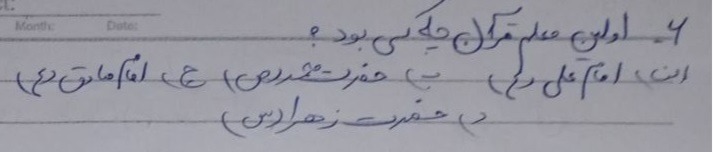 Month: Date:
۶- اولین معلم قرآن چه کسی بود؟
الف) امام علی (ع) ب) حضرت محمد (ص) ج) امام صادق (ع)
د) حضرت زهرا (س)